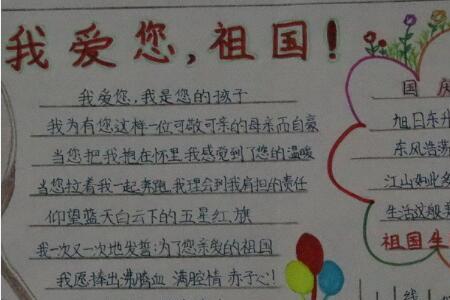 我爱您,祖国!
我爱您,我是您的孩子
我为有您这样一位可敬可亲的母亲而自豪
当您把我抱在怀里我感觉到了您的温暖
当您拉着我一起奔跑,我理会到我肩担的责任
仰望蓝天白云下的五星红旗
我一次又一次地发誓:为了您亲爱的祖国
我愿捧出沸腾血 满腔情 赤子心!
国庆
旭日东升
东风浩荡
江山如此多
生活这般美
祖国生
线